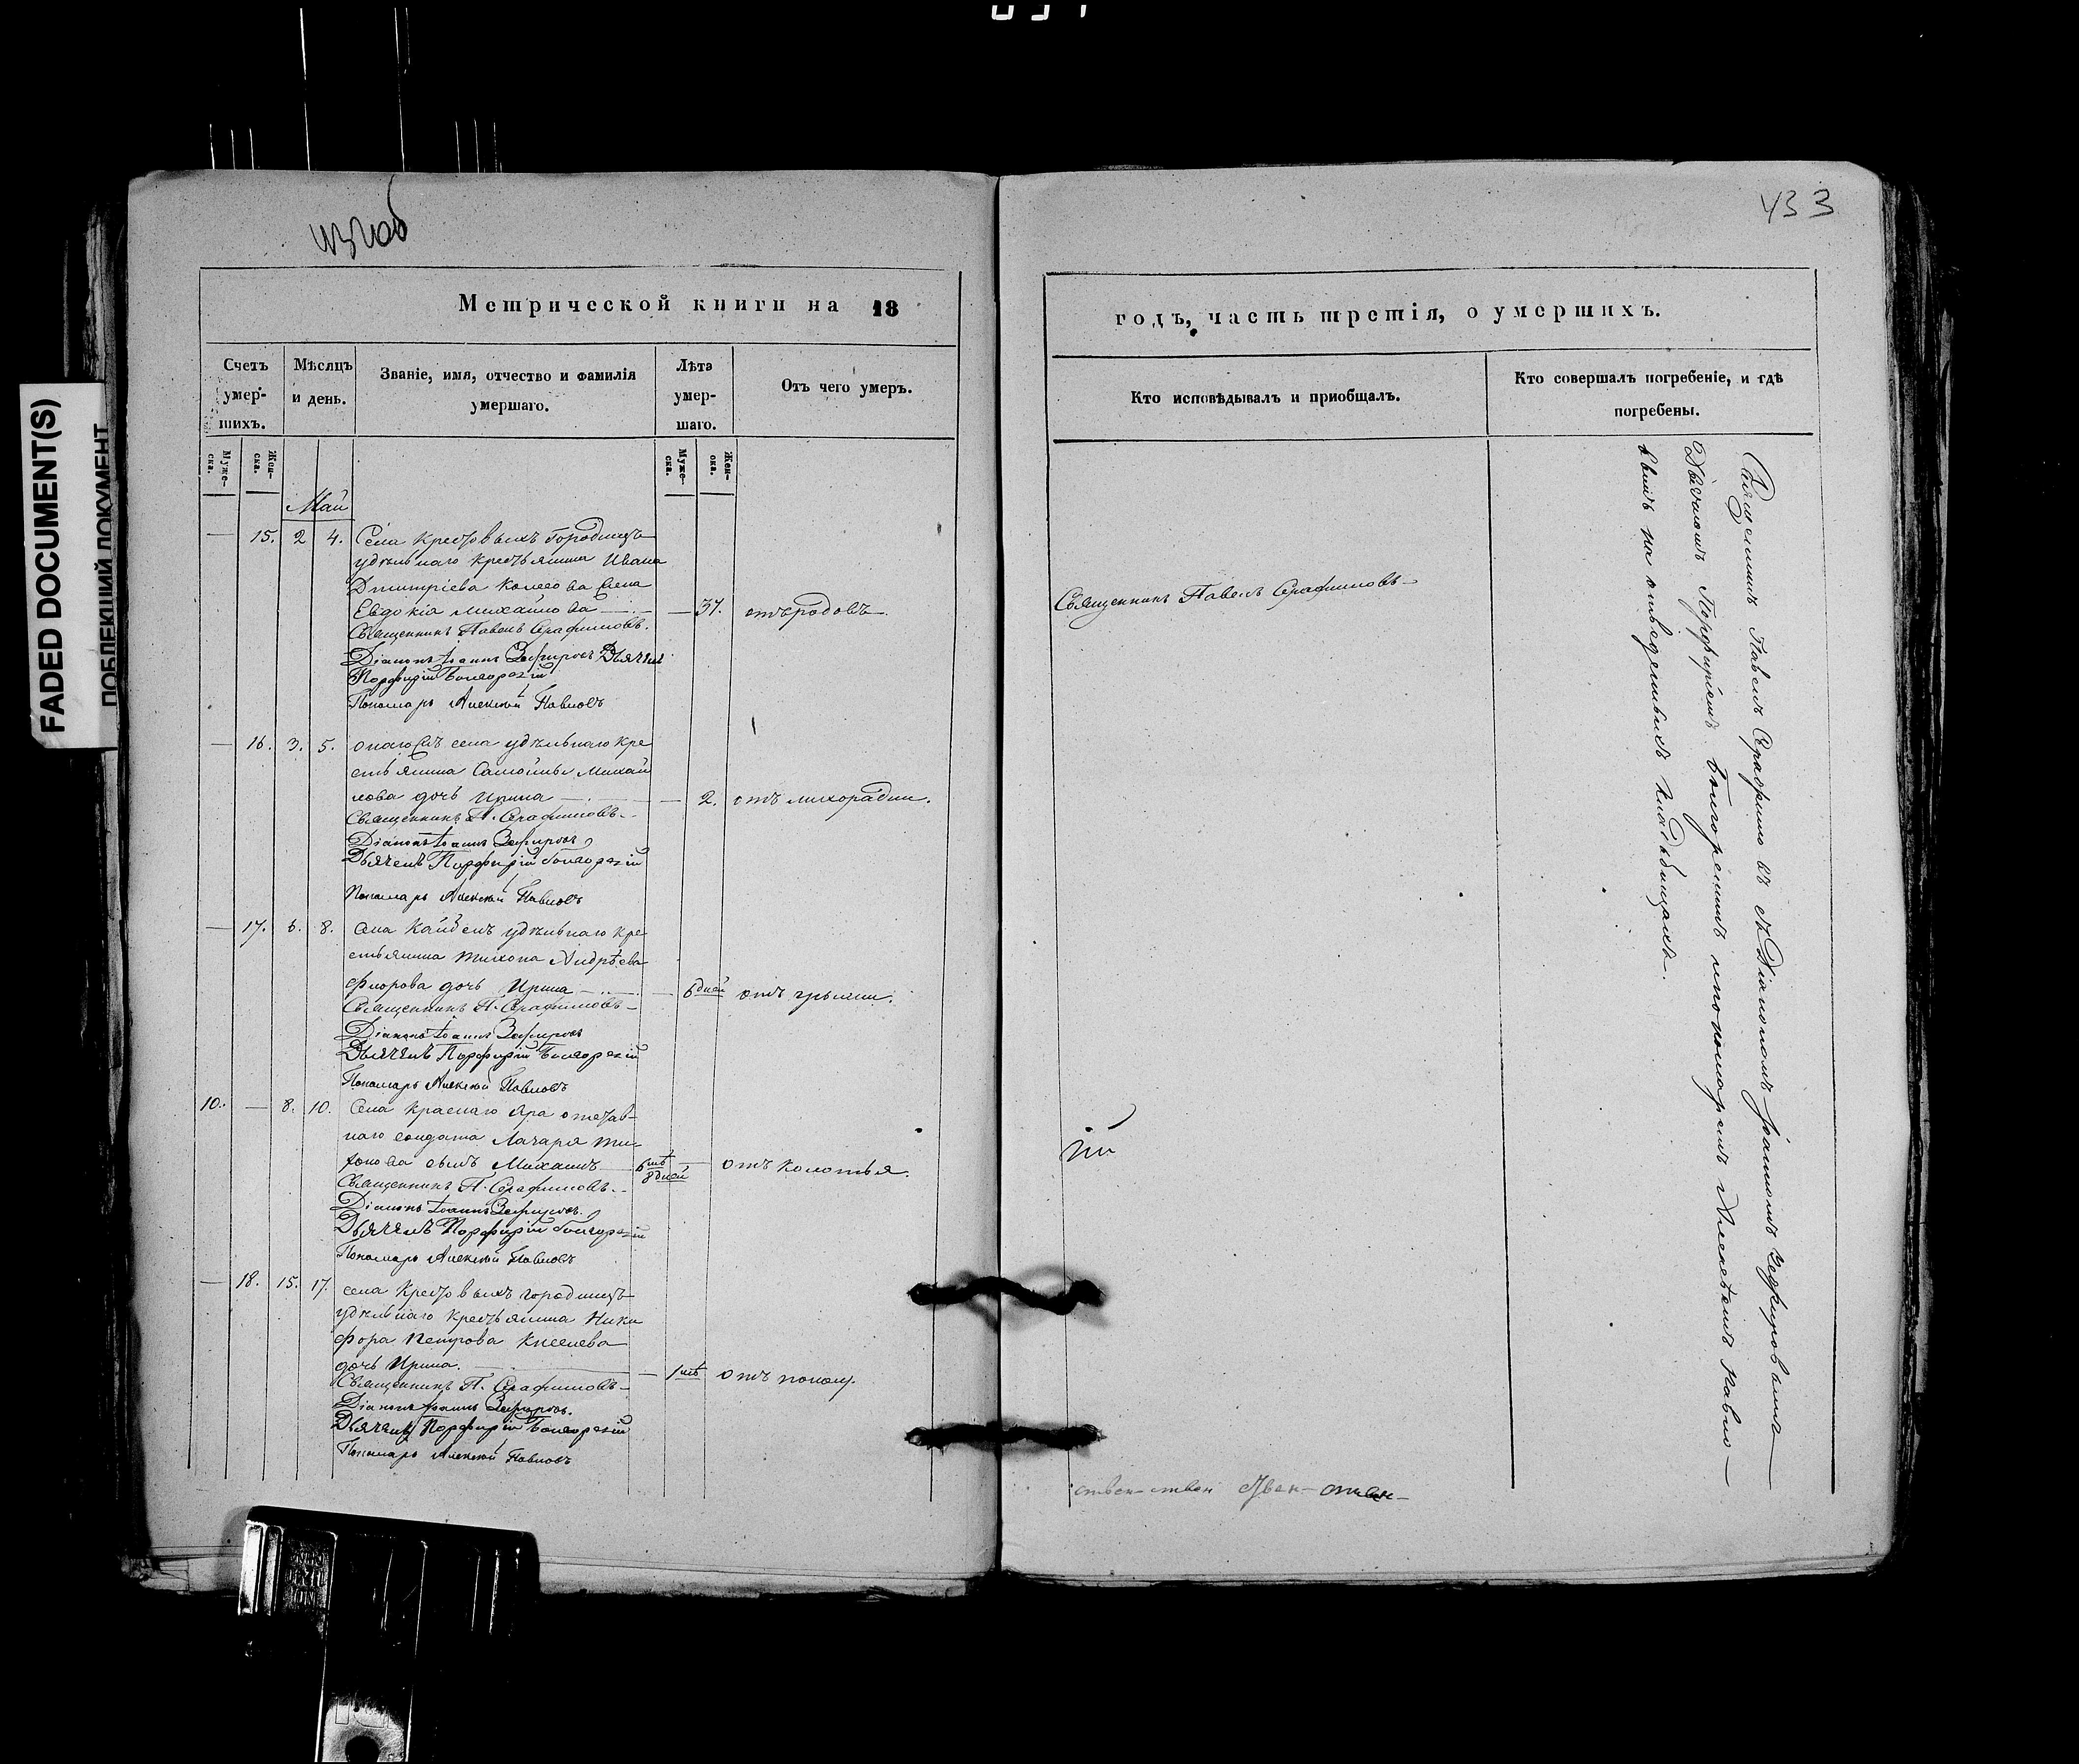 433
Метрической книги на 18
годъ, часть третія, о умершихъ.
Счетъ умер- шихъ.
Мѣсяцъ и день.
Званіе, имя, отчество и фамилія умершаго.
Лѣта умер- шаго.
Отъ чего умеръ.
Кто исповѣдывалъ и приобщалъ.
Кто совершалъ погребеніе, и гдѣ погребены.
Муже- ска.
Жен- ска.
Муже- ска.
Жен- ска.
Май
— 15. 2 4. Села Крестовыхъ Городищъ
удѣльнаго крестьянина Ивана
Дмитріева жена
Евдокія Михайлова — 37. отъ родовъ.
Священникъ Павелъ Серафимовъ.
Діаконъ Іоаннъ Зефировъ Дьячекъ
Порфирій
Пономарь Алексѣй Павловъ
Священникъ Павелъ Серафимовъ
— 16. 3. 5. села удѣльнаго кре
стьянина Самойлы Михай
лова дочь Ирина — 2. отъ лихорадки.
Священникъ П. Серафимовъ.
Діаконъ Іоаннъ Зефировъ
Дьячекъ Порфирій
Пономарь Алексѣй Павловъ
— 17. 6. 8. села удѣльнаго кре
стьянина Тихона Андрѣева
Фролова дочь Ирина — 6 дней отъ грыжи.
Священникъ П. Серафимовъ
Діаконъ Іоаннъ Зефировъ
Дьячекъ Порфирій
Пономарь Алексѣй Павловъ
10. — 8. 10. Села Краснаго Яра отстав-
наго солдата Лазаря Ти-
хонова сынъ Михаилъ 8 дней — отъ колотья.
Священникъ П. Серафимовъ.
Діаконъ Іоаннъ Зефировъ.
Дьячекъ Порфирій
Пономарь Алексѣй Павловъ
— 18. 15. 17. села Крестовыхъ Городищъ
удѣльнаго крестьянина Ники
фора Петрова Киселева
дочь Ирина. — отъ поносу.
Священникъ П. Серафимовъ
Діаконъ Іоаннъ Зефировъ.
Дьячекъ Порфирій
Пономарь Алексѣй Павловъ
Священникъ Павелъ Серафимовъ съ Діакономъ Іоанномъ Зефировымъ
Дьячкомъ Порфиріемъ и пономаремъ Алексѣемъ Павло—
вымъ на отведенныхъ кладбищахъ.
FADED DOCUMENT(S)
ДОКУМЕНТ